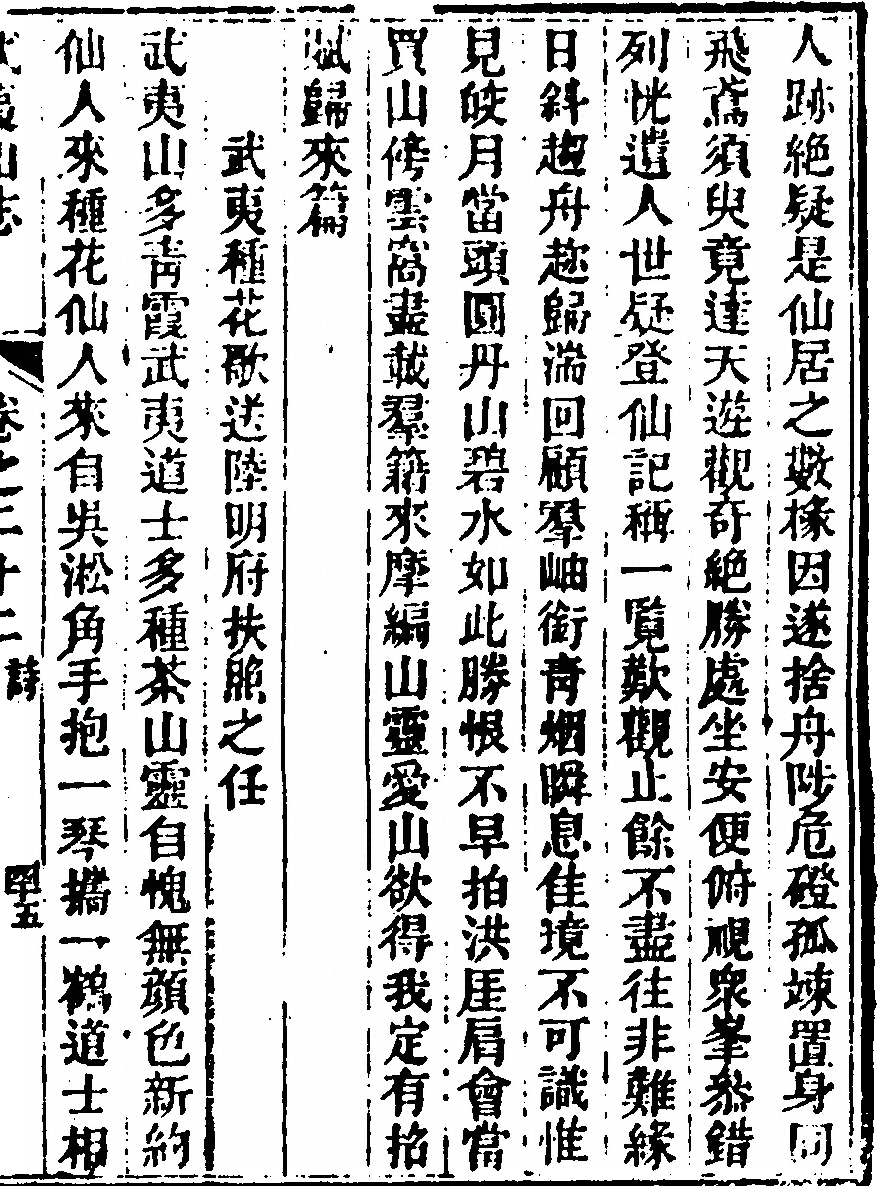 人跡絶疑是仙居之數椽因遂捨舟陟危磴孤竦置身同
飛鳶須臾竟達天遊觀奇絶勝處坐安便俯視衆峯㳟錯
列恍遺人世疑登仙記稱一覧歎觀止餘不盡往非難緣
日斜趣舟趂歸湍回顧羣岫銜青烟瞬息佳境不可識惟
見皎月當頭圓丹山碧水如此勝恨不早拍洪厓肩會當
買山傍雲窩盡載羣籍來摩編山靈愛山欲得我定有招
賦歸來篇
武夷種花歌送陸明府扶照之任
武夷山多青霞武夷道士多種茶山靈自愧無顔色新約
仙人來種花仙人來自吳淞角手抱一琴攜一鶴道士相
武夷山志
卷之二十二
詩
四十五